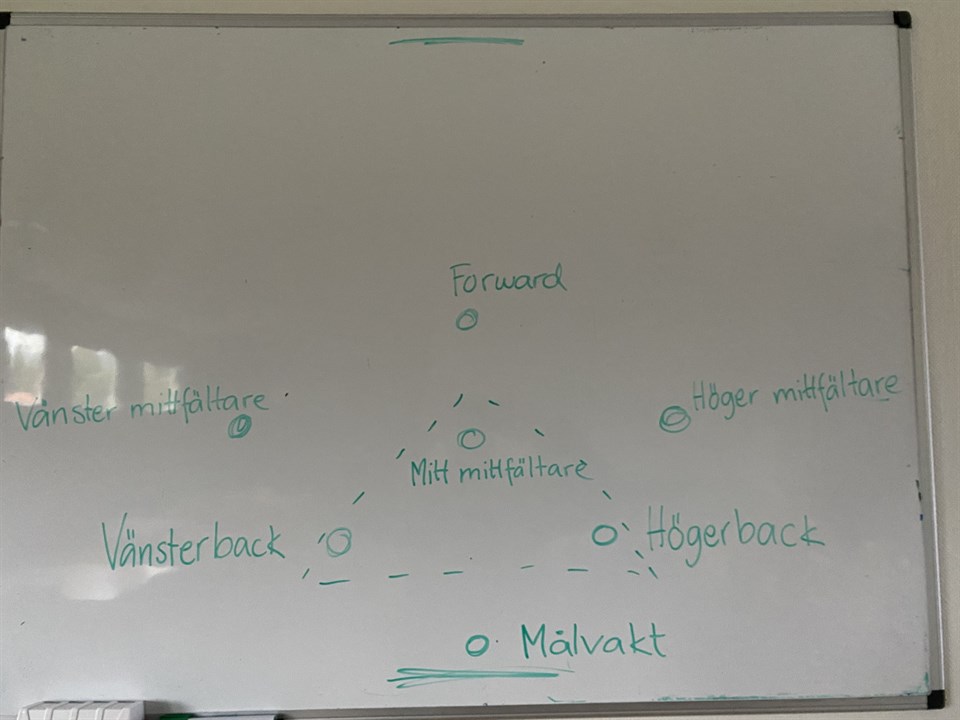 Forward
Vänster mittfältare
Höger mittfältare
Mitt mittfältare
Vänsterback
Högerback
Målvakt